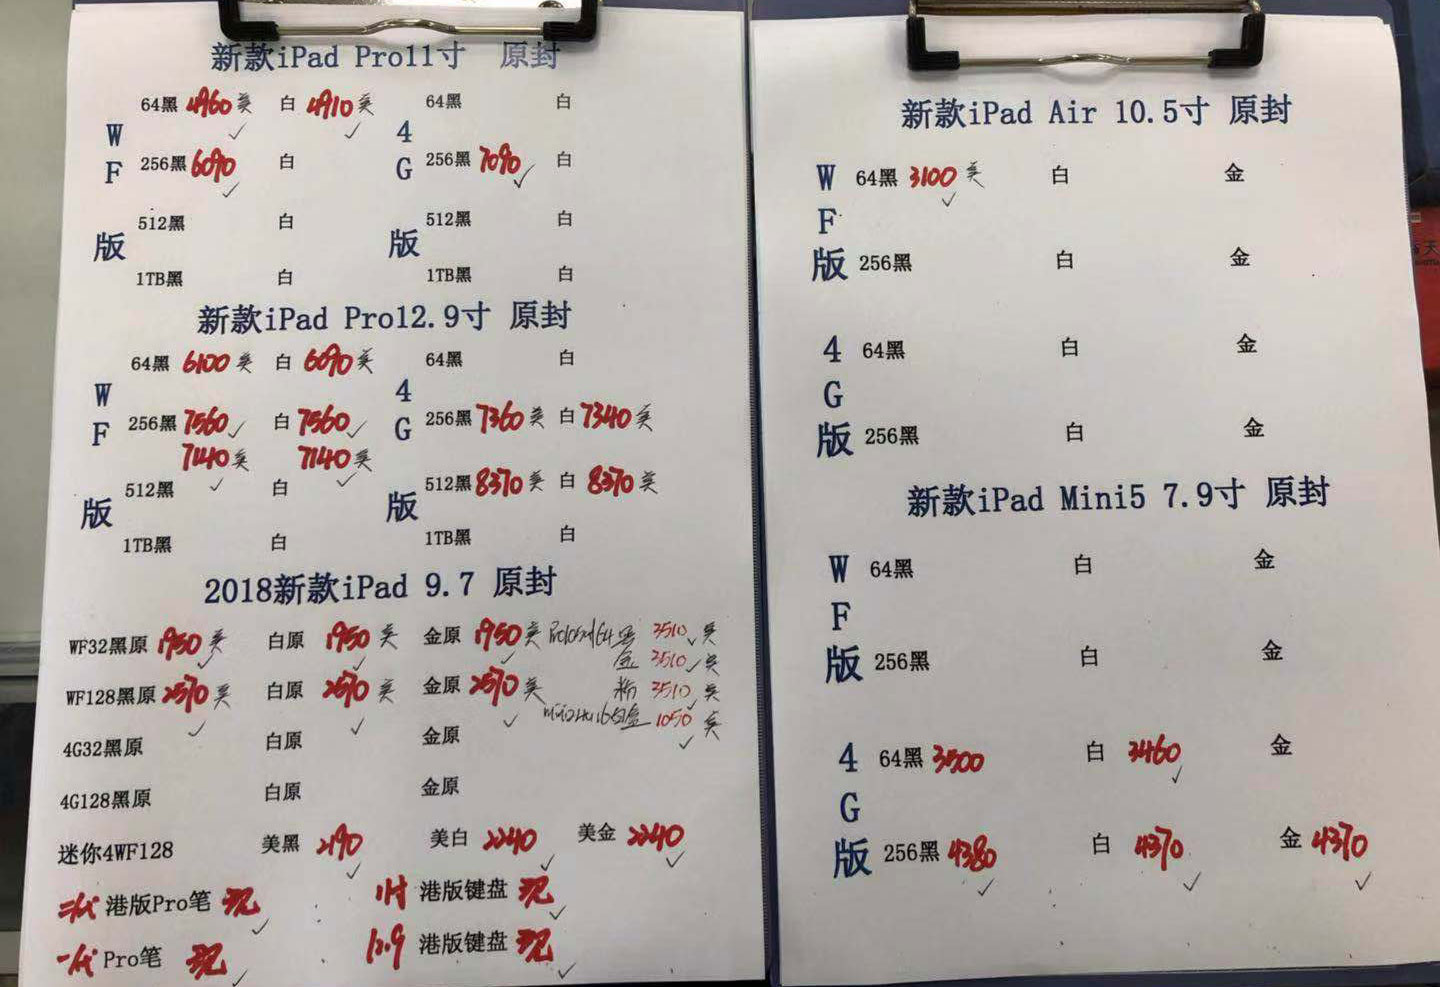 新款iPad Pro11寸 原封
64黑 4960 美 白 4910 美 64黑 白
W 4
F 256黑 6090 白 G 256黑 7090 白
512黑 白 512黑 白
版 版
1TB黑 白 1TB黑 白
新款iPad Pro12.9寸 原封
64黑 6100 美 白 6090 美 64黑 白
W 4
F 256黑 7560 白 7560 G 256黑 7360 美 白 7340 美
7140 美 7140 美
512黑 白 512黑 8370 美 白 8370 美
版 版
1TB黑 白 1TB黑 白
2018新款iPad 9.7 原封
WF32黑原 1950 美 白原 1950 美 金原 1950 美 3510 美
金 3510 美
WF128黑原 2570 美 白原 2570 美 金原 2570 美 粉 3510 美
1050 美
4G32黑原 白原 金原
4G128黑原 白原 金原
迷你4WF128 美黑 2190 美白 2240 美金 2240
二代 港版Pro笔 现 11寸 港版键盘 现
一代 Pro笔 现 12.9 港版键盘 现
新款iPad Air 10.5寸 原封
W 64黑 3100 美 白 金
F
版 256黑 白 金
4 64黑 白 金
G
版 256黑 白 金
新款iPad Mini5 7.9寸 原封
W 64黑 白 金
F
版 256黑 白 金
4 64黑 3500 白 3460 金
G
版 256黑 4380 白 4370 金 4370
天